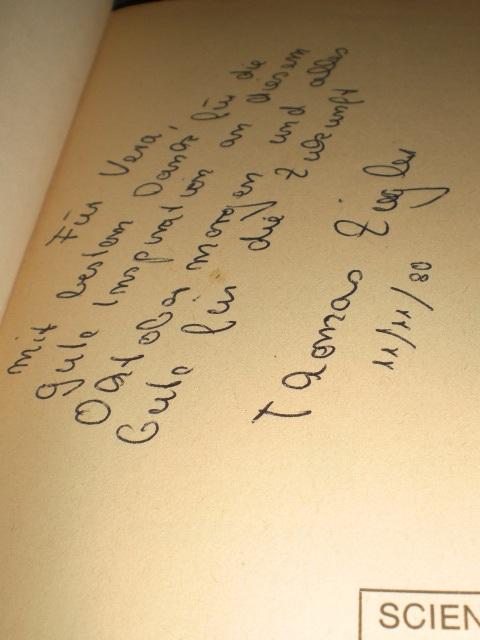 Für Vera,
mit bestem Dank für die
gute Inspiration an diesem
Oktobermorgen und alles
Gute für die Zukunft
Thomas Ziegler
11/11/80
SCIEN